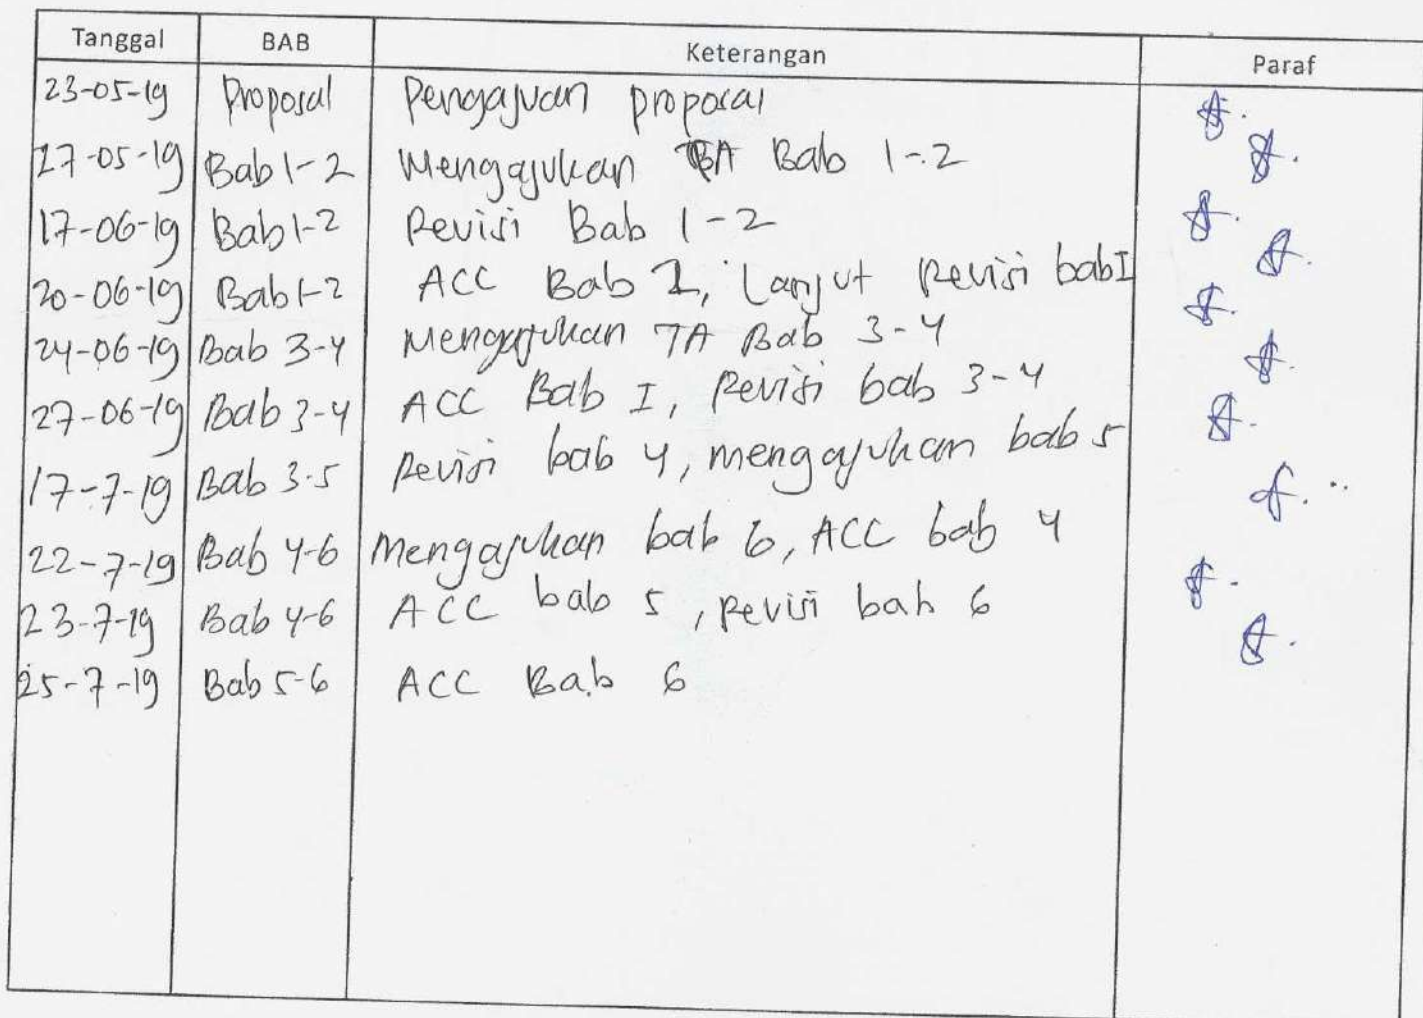 Tanggal BAB Keterangan Paraf
23-05-19 Proposal Pengajuan proposal
27-05-19 Bab 1-2 Mengajukan TA Bab 1-2
17-06-19 Bab 1-2 Revisi Bab 1-2
20-06-19 Bab 1-2 ACC Bab 2, Lanjut Revisi bab I
24-06-19 Bab 3-4 Mengajukan TA Bab 3-4
27-06-19 Bab 3-4 ACC Bab I, Revisi bab 3-4
17-7-19 Bab 3-5 Revisi bab 4, mengajukan bab 5
22-7-19 Bab 4-6 Mengajukan bab 6, ACC bab 4
23-7-19 Bab 4-6 ACC bab 5, Revisi bab 6
25-7-19 Bab 5-6 ACC Bab 6